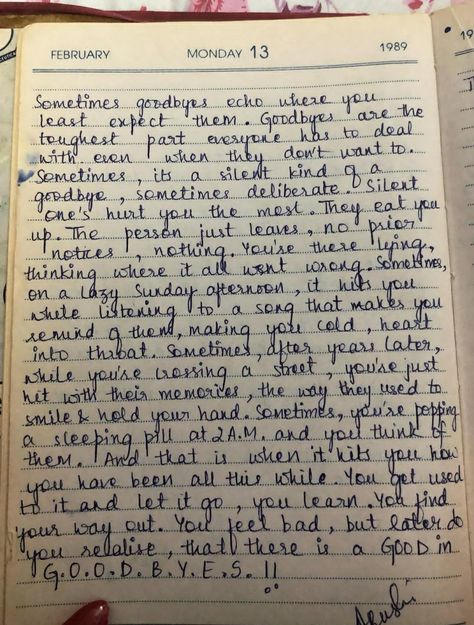 FEBRUARY MONDAY 13 1989
Sometimes goodbyes echo where you
least expect them. Goodbyes are the
toughest part everyone has to deal
with even when they don't want to.
Sometimes, its a silent kind of a
goodbye, sometimes deliberate. Silent
one's hurt you the most. They eat you
up. The person just leaves, no prior
notices, nothing. You're there lying,
thinking where it all went wrong. Sometimes,
on a lazy Sunday afternoon, it hits you
while listening to a song that makes you
remind of them, making you cold, heart
into throat. Sometimes, after years later,
while you're crossing a street, you're just
hit with their memories, the way they used to
smile & hold your hand. Sometimes, you're popping
a sleeping pill at 2A.M. and you think of
them. And that is when it hits you how
you have been all this while. You get used
to it and let it go, you learn. You find
your way out. You feel bad, but later do
you realise, that there is a GOOD in
G.O.O.D.B.Y.E.S.!!
19